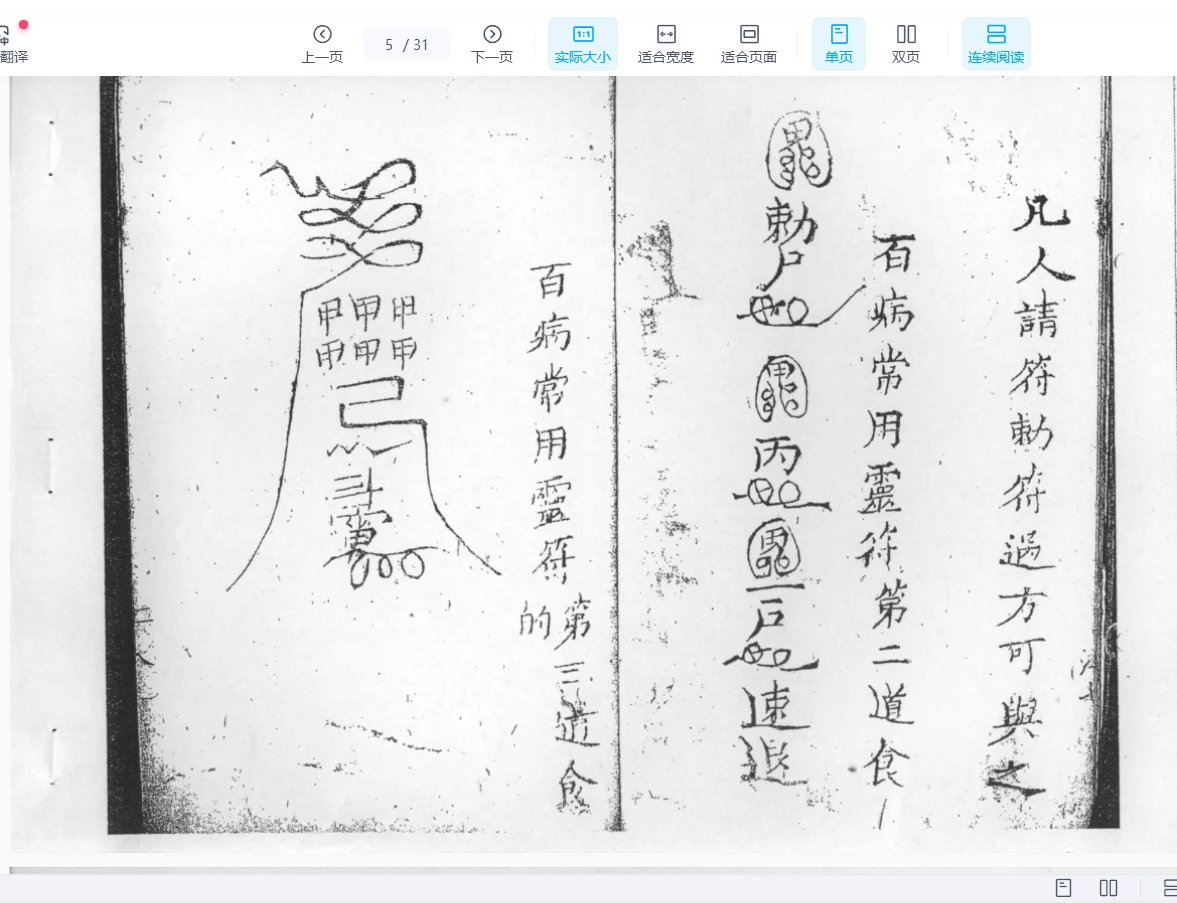 翻译
上一页
5 / 31
下一页
1:1
实际大小
适合宽度
适合页面
单页
双页
连续阅读
凡人請符勅符過方可與之
百病常用靈符第二道食
勅尸
丙
尸
速退
百病常用靈符第三道食
的
甲甲甲
甲甲甲
己
斗